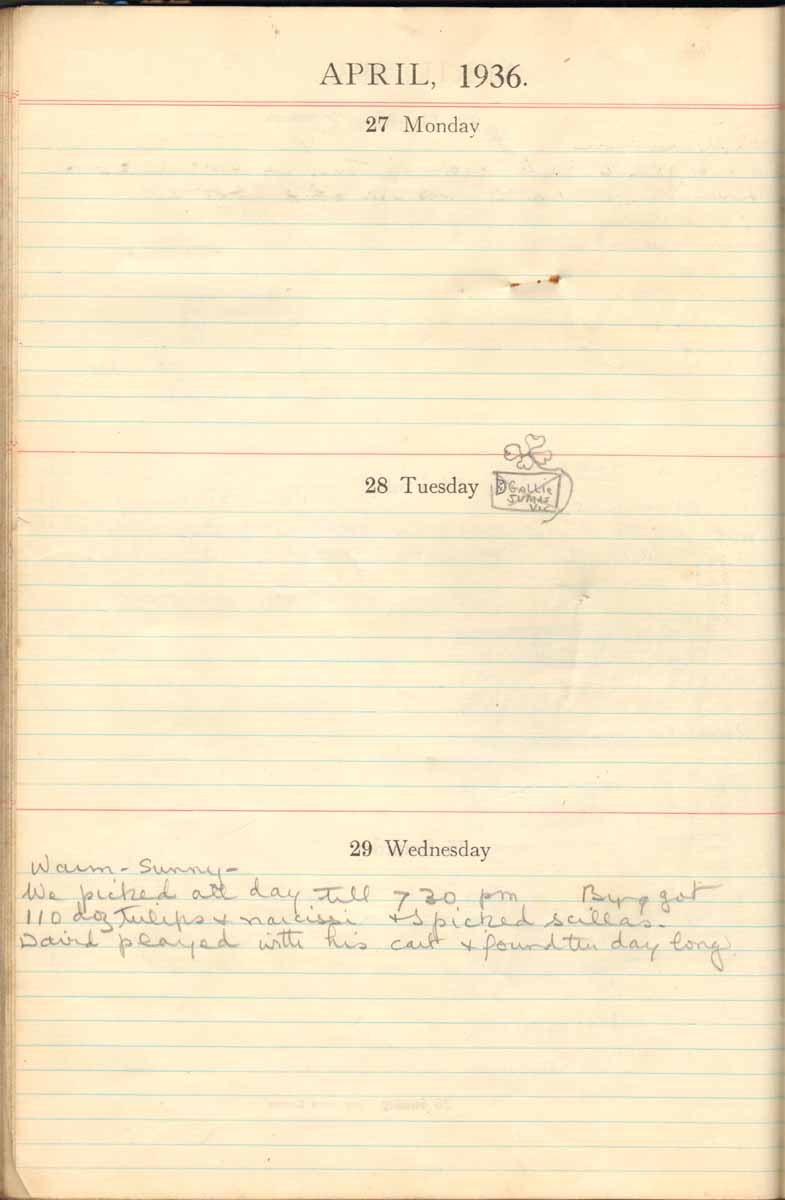 APRIL, 1936.
27 Monday
28 Tuesday
GALLIE
VIC
29 Wednesday
Warm - Sunny -
We picked all day till 7 30 pm got
110 doz tulips & narcissi & I picked scillas.
David played with his cart & found the day long